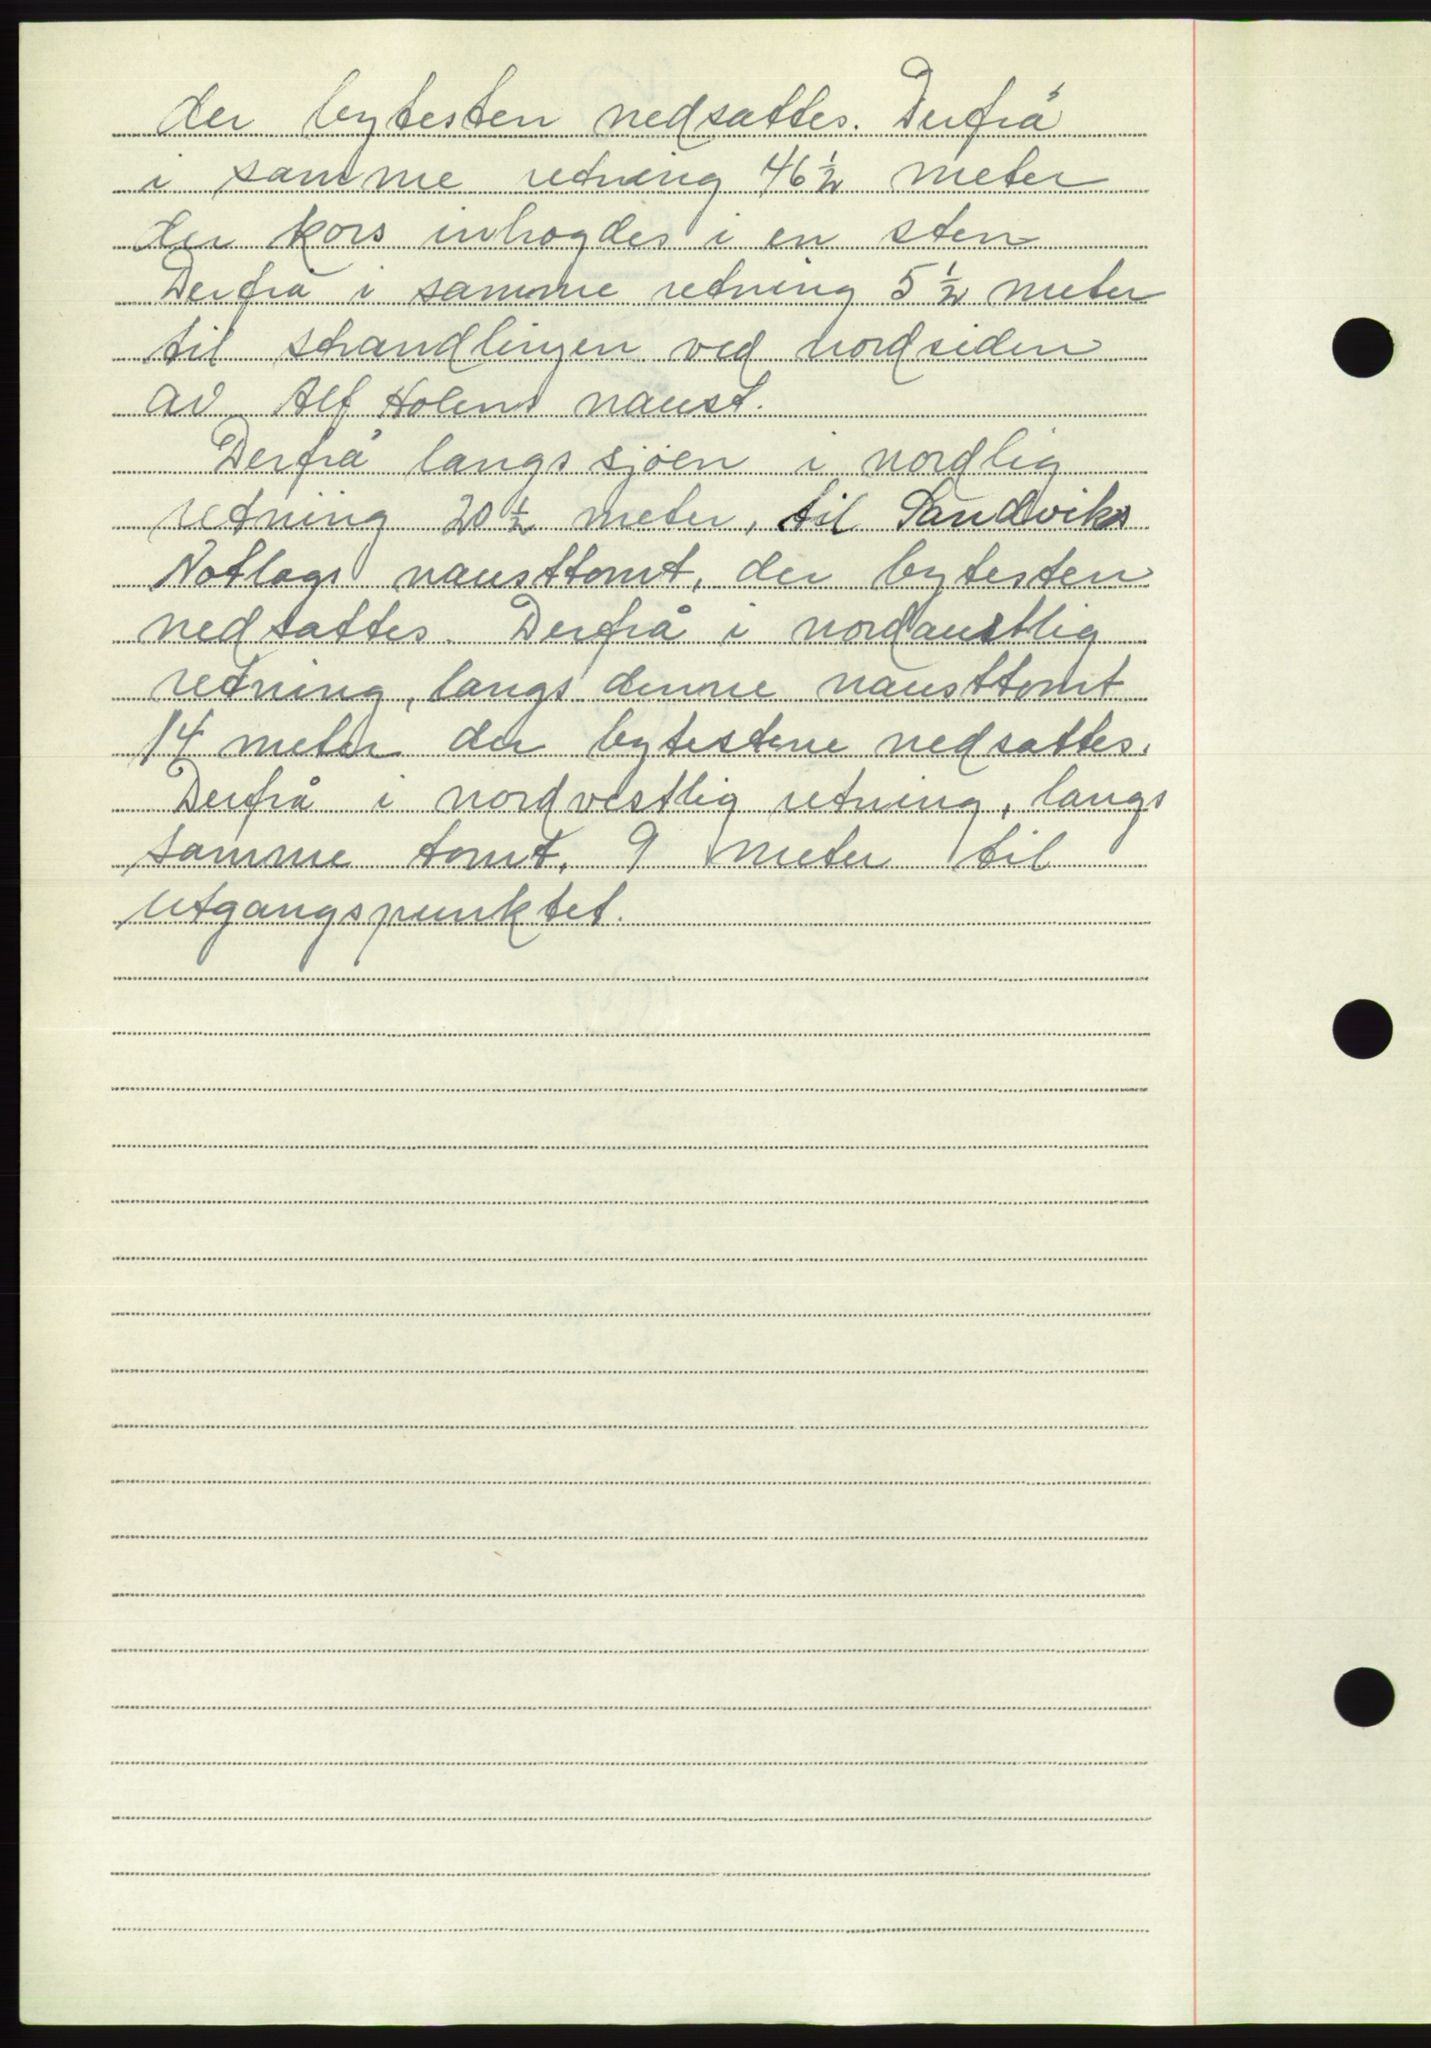 der bytesten nedsattes. Derfrå
i samme retning 46 ½ meter
der kors inhogdes i en sten
Derfrå i samme retning 5 ½ meter
til strandlinjen ved nordsiden
av Alf Holens naust.
Derfrå langs sjøen i nordlig
retning 20 ½ meter, til Sandviks
Notlags nausttomt, der bytesten
nedsattes. Derfrå i nordaustlig
retning, langs denne nausttomt
14 meter der bytestene nedsattes.
Derfrå i nordvestlig retning, langs
samme tomt, 9 meter til
utgangspunktet.